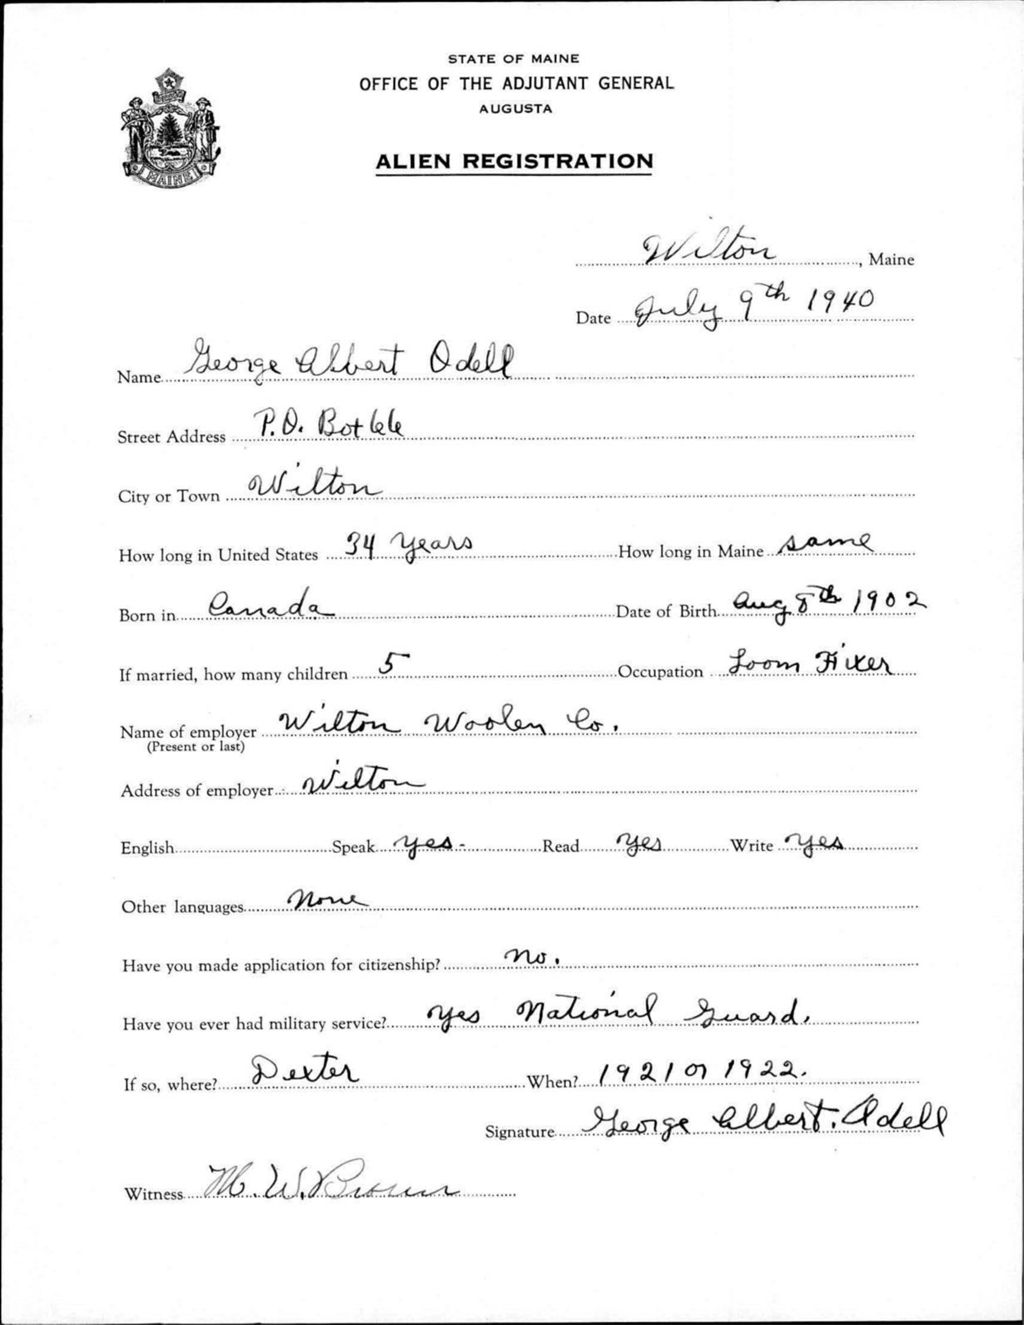 STATE OF MAINE
OFFICE OF THE ADJUTANT GENERAL
AUGUSTA
ALIEN REGISTRATION
MAINE
Wilton, Maine
Date July 9th 1940
Name George Albert Odell
Street Address P.O. Box 666
City or Town Wilton
How long in United States 34 Years How long in Maine same
Born in Canada Date of Birth Aug 8th 1902
If married, how many children 5 Occupation Loom Fixer
Name of employer Wilton Woolen Co.
(Present or last)
Address of employer Wilton
English Speak yes - Read yes Write yes
Other languages None
Have you made application for citizenship? No.
Have you ever had military service? yes National Guard.
If so, where? Dexter When? 1921 or 1922.
Signature George Albert. Odell
Witness M. W. Brown